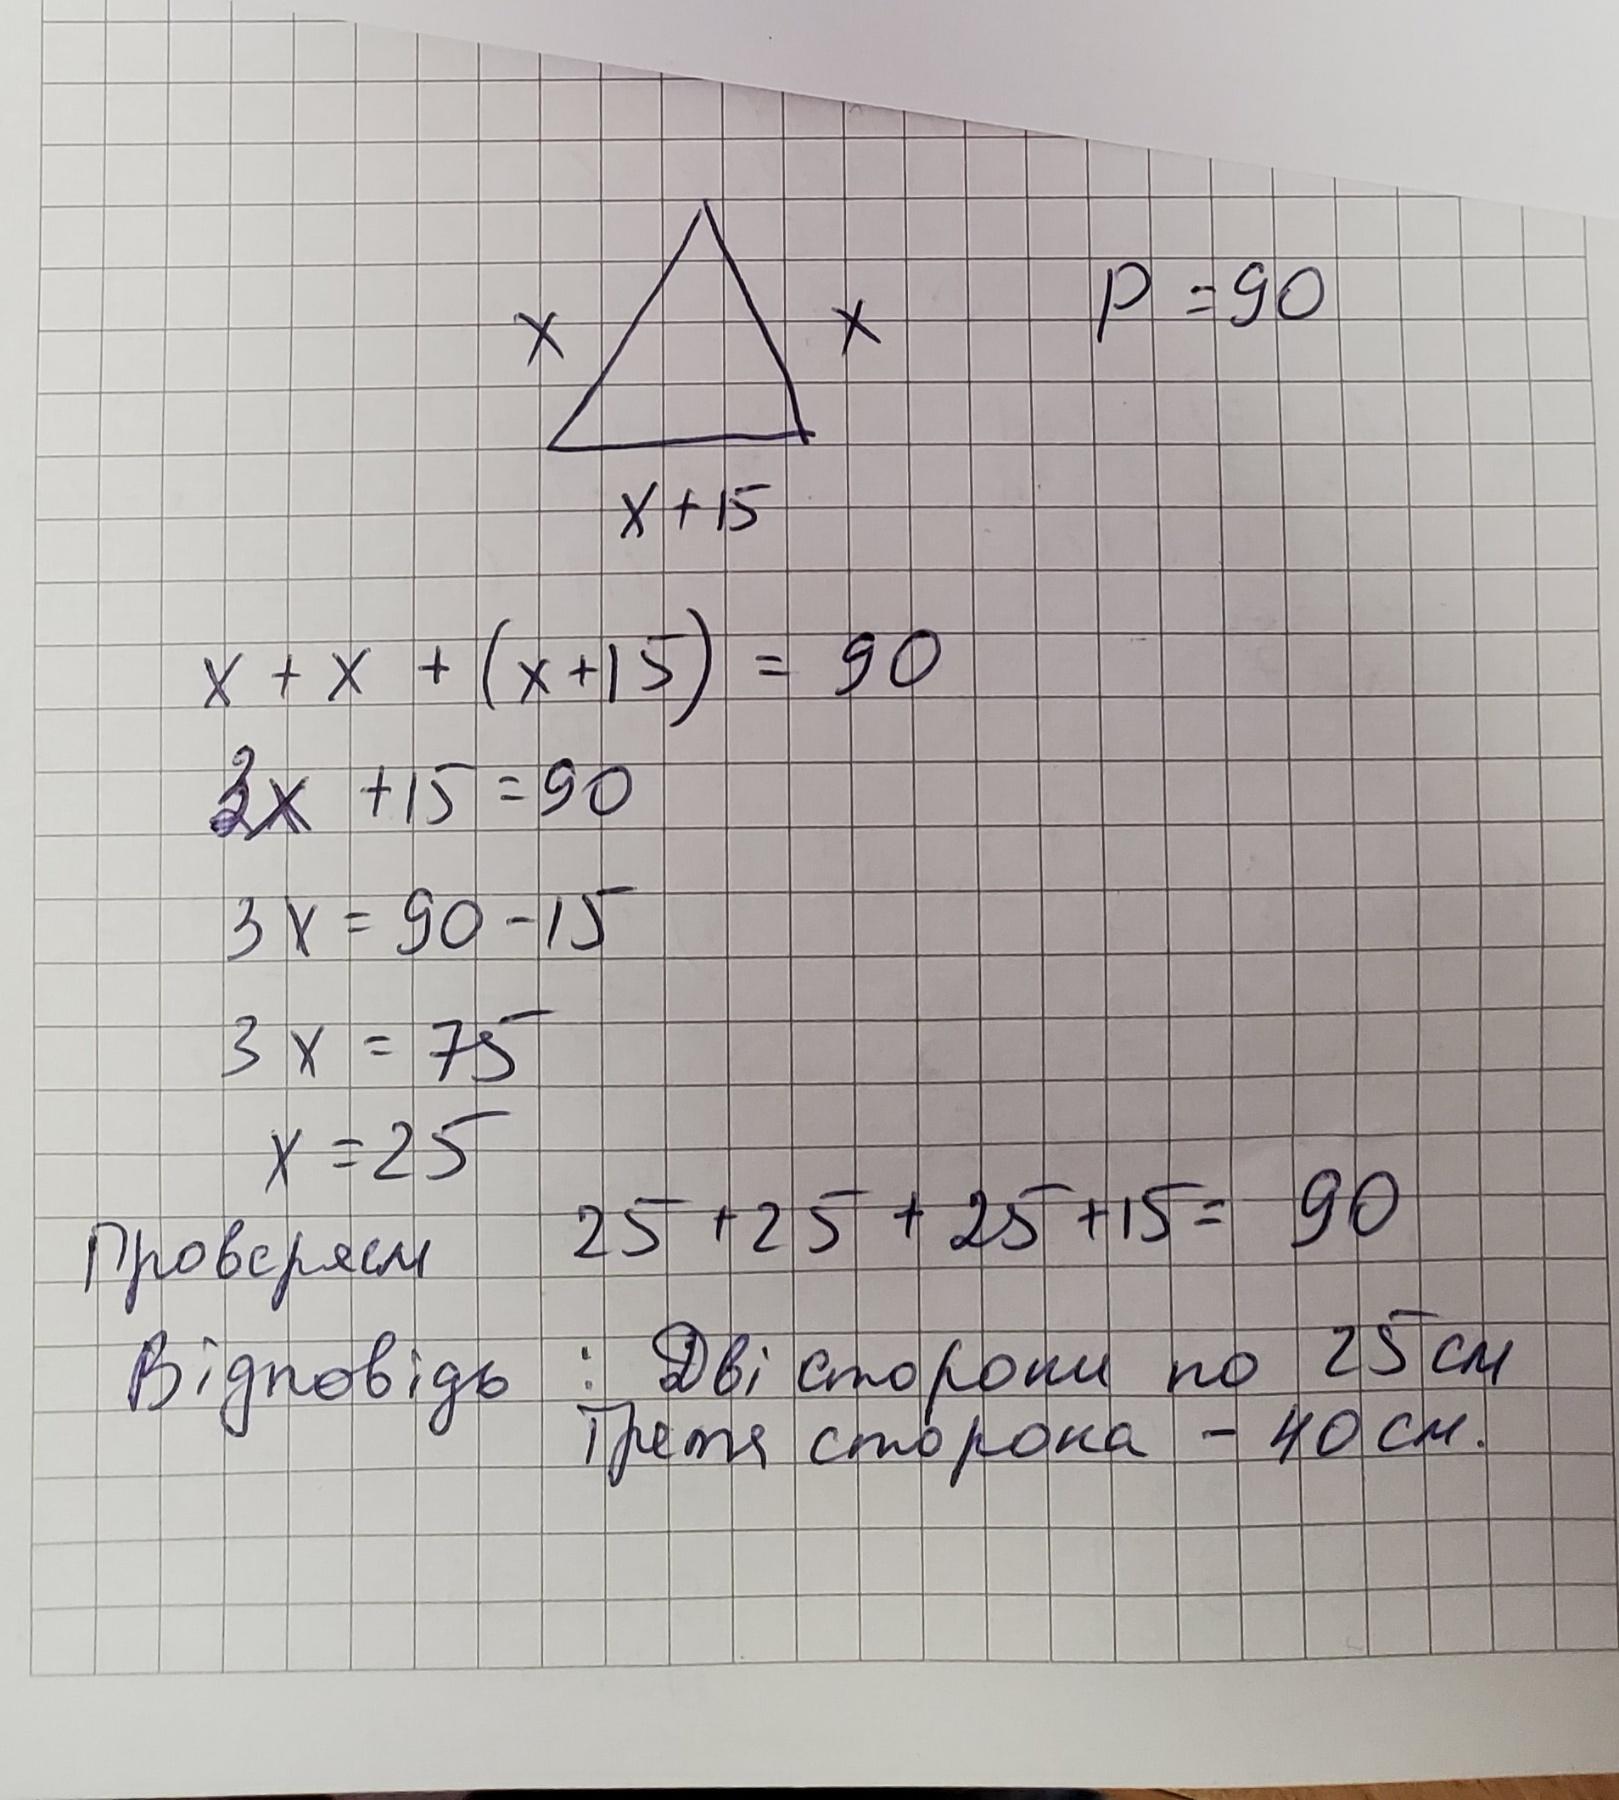 x x P = 90
x + 15
x + x + (x + 15) = 90
3x + 15 = 90
3x = 90 - 15
3x = 75
x = 25
Проверяем 25 + 25 + 25 + 15 = 90
Відповідь : Дві сторони по 25 см
Третя сторона - 40 см.